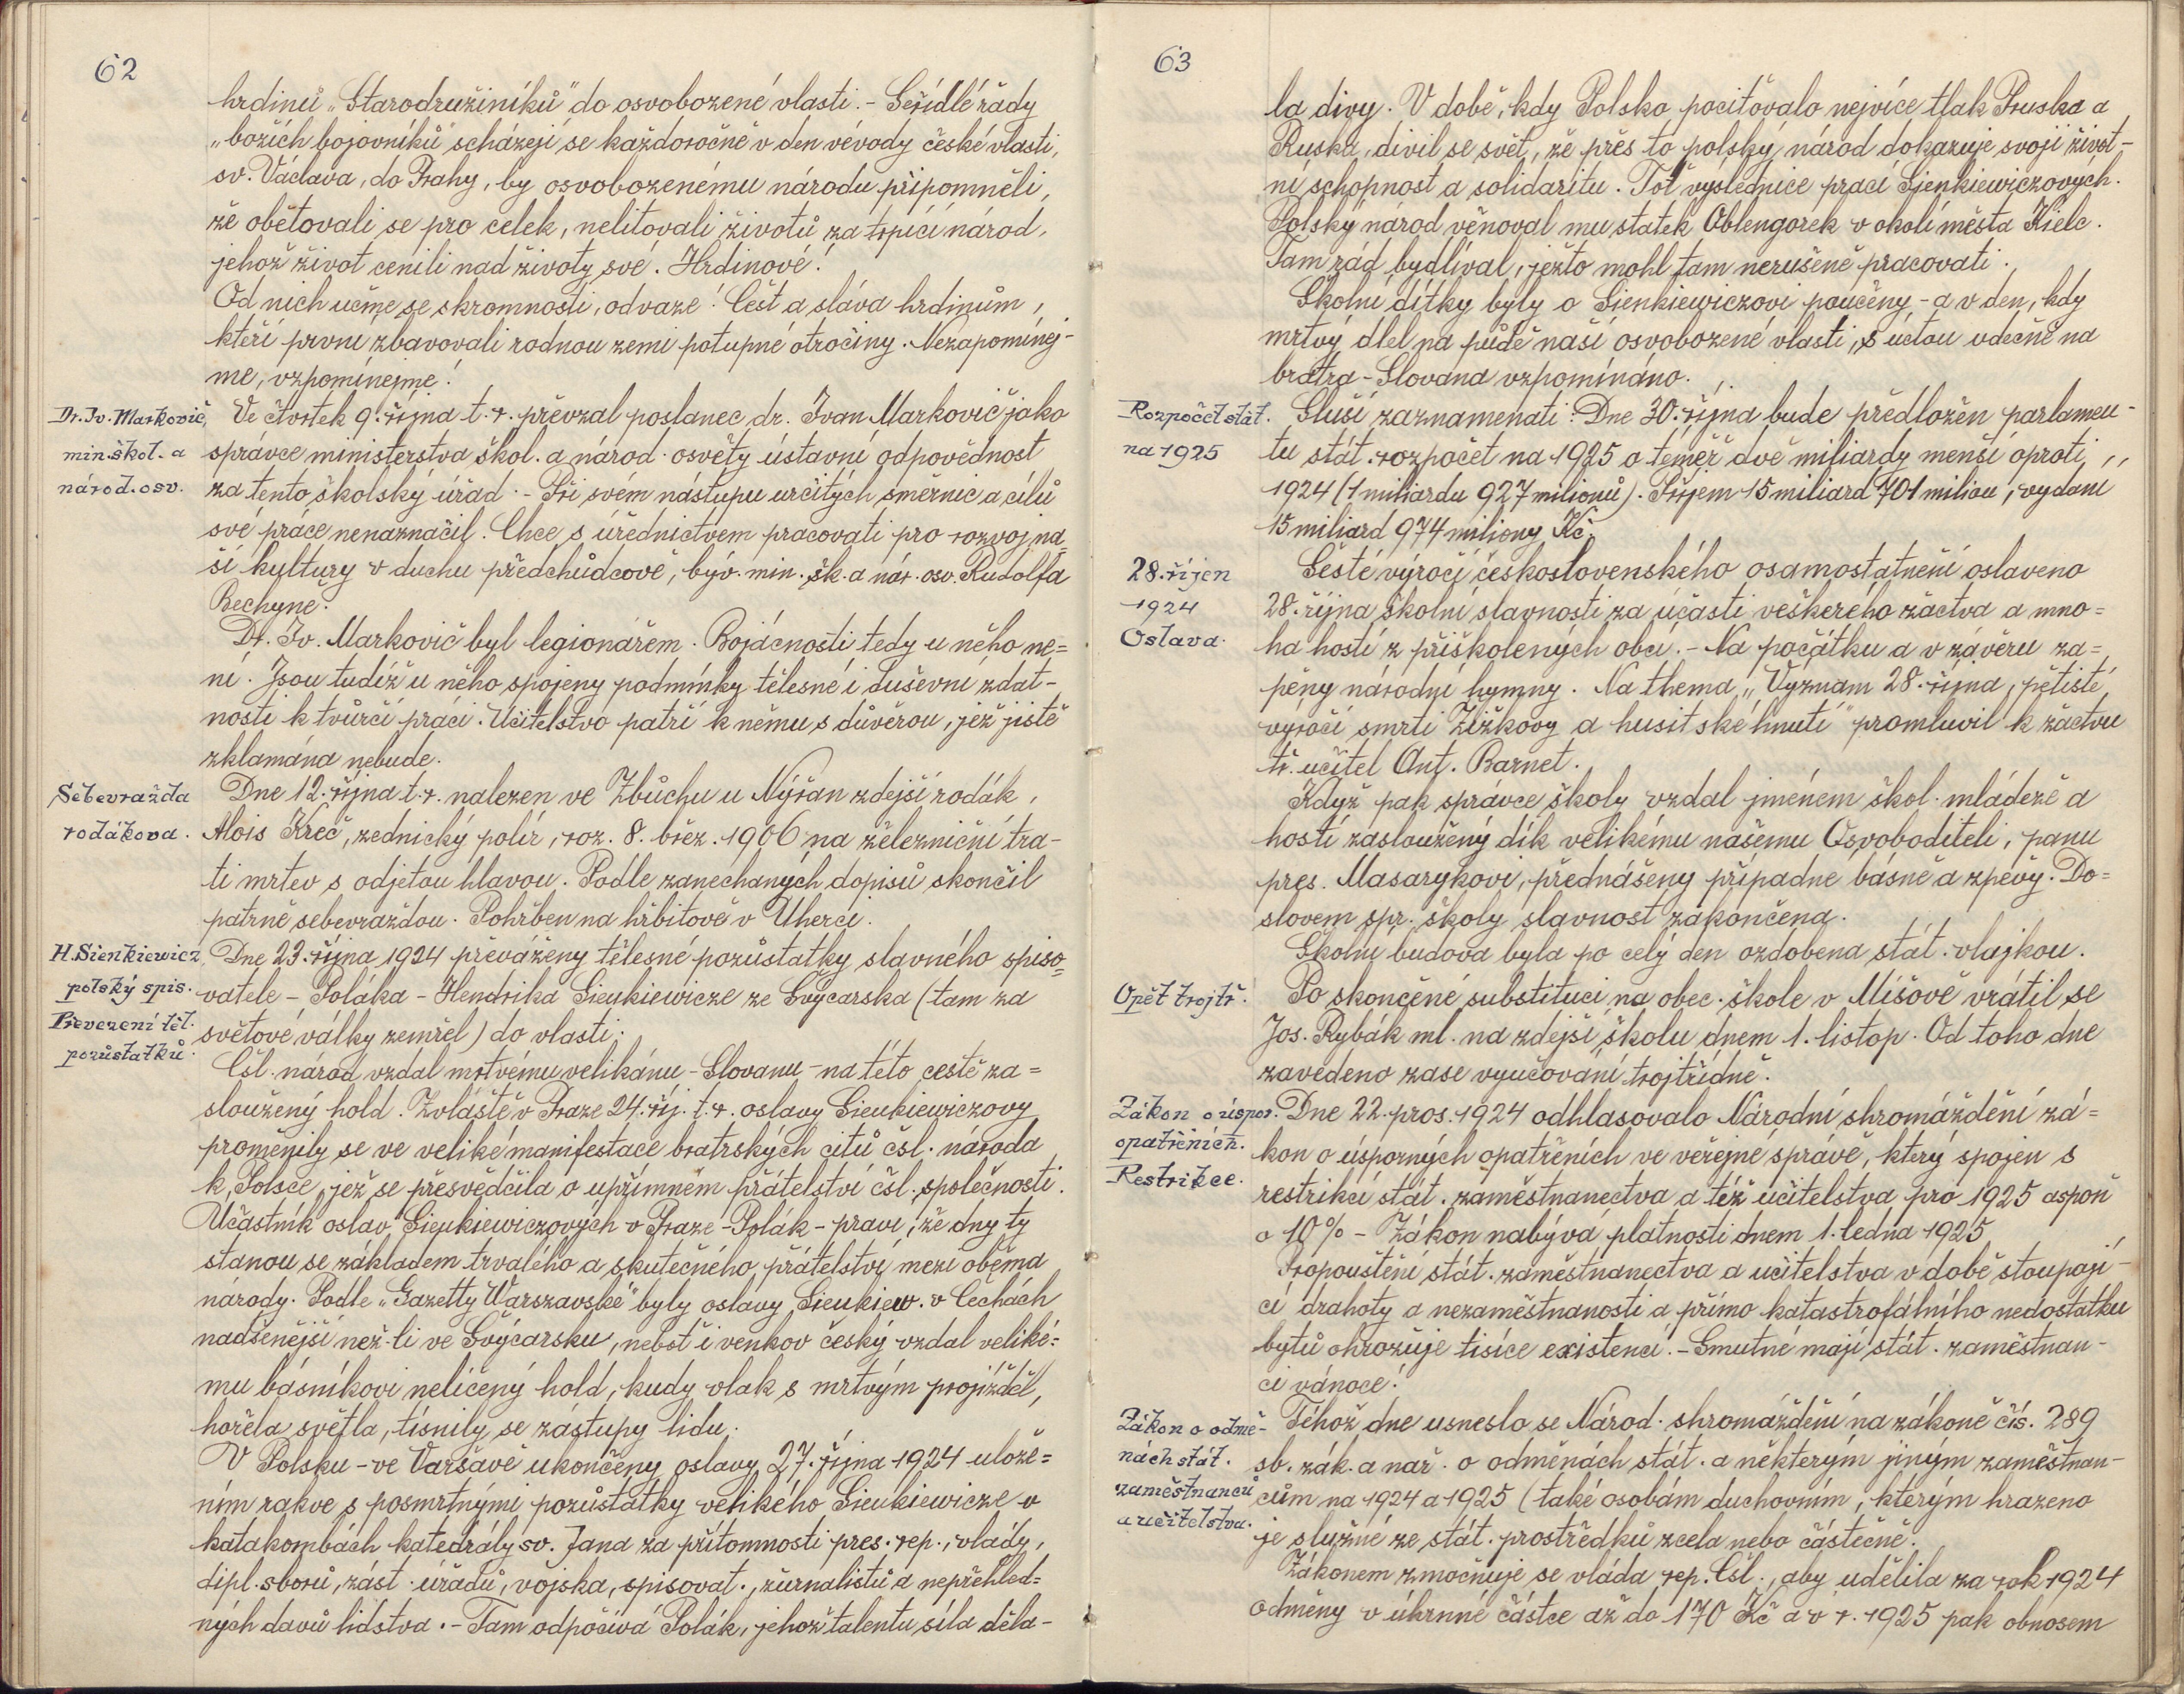 62
hrdinů „Starodružiníků" do osvobozené vlasti. - Seřídlé řady
„božích bojovníků" scházejí se každoročně v den vévody české vlasti,
sv. Václava, do Prahy, by osvobozenému národu připomněli,
že obětovali se pro celek, nelitovali životů za trpící národ,
jehož život cenili nad životy své. Hrdinové!
Od nich učme se skromnosti, odvaze! Čest a sláva hrdinům,
kteří první zbavovali rodnou zemi potupné otročiny. Nezapomínej-
me, vzpomínejme!
Dr. Iv. Markovič,
min. škol. a
národ. osv.
Ve čtvrtek 9. října t. r. převzal poslanec dr. Ivan Markovič jako
správce ministerstva škol. a národ. osvěty ústavní odpovědnost
za tento školský úřad. - Při svém nástupu určitých směrnic a cílů
své práce nenaznačil. Chce s úřednictvem pracovati pro rozvoj na=
ší kultury v duchu předchůdcově, býv. min. šk. a nár. osv. Rudolfa
Bechyně.
Dr. Iv. Markovič byl legionářem. Bojácnosti tedy u něho ne=
ní. Jsou tudíž u něho spojeny podmínky tělesné i duševní zdat-
nosti k tvůrčí práci. Učitelstvo patří k němu s důvěrou, jež jistě
zklamána nebude.
Sebevražda
rodákova.
Dne 12. října t. r. nalezen ve Zbůchu u Nýřan zdejší rodák,
Alois Kreč, zednický polír, roz. 8. břez. 1906 na železniční tra-
ti mrtev s odjetou hlavou. Podle zanechaných dopisů skončil
patrně sebevraždou. Pohřben na hřbitově v Úherci.
H. Sienkiewicz,
polský spis.
Převezení těl.
pozůstatků.
Dne 23. října 1924 převáženy tělesné pozůstatky slavného spiso=
vatele - Poláka - Hendrika Sienkiewicze ze Švýcarska (tam za
světové války zemřel) do vlasti.
Čsl. národ vzdal mrtvému velikánu - Slovanu - na této cestě za=
sloužený hold. Zvláště v Praze 24. říj. t. r. oslavy Sienkiewiczovy
proměnily se ve veliké manifestace bratrských citů čsl. národa
k Polsce, jež se přesvědčila o upřímném přátelství čsl. společnosti.
Účastník oslav Sienkiewiczových v Praze - Polák - praví, že dny ty
stanou se základem trvalého a skutečného přátelství mezi oběma
národy. Podle „Gazetty Warszavské" byly oslavy Sienkiew. v Čechách
nadšenější než-li ve Švýcarsku, neboť i venkov český vzdal veliké=
mu básníkovi nelíčený hold, kudy vlak s mrtvým projížděl,
hořela světla, tísnily se zástupy lidu.
V Polsku - ve Varšavě ukončeny oslavy 27. října 1924 ulože=
ním rakve s posmrtnými pozůstatky velikého Sienkiewicze v
katakombách katedrály sv. Jana za přítomnosti pres. rep., vlády,
dipl. sborů, zást. úřadů, vojska, spisovat., žurnalistů a nepřehled=
ných davů lidstva. - Tam odpočívá Polák, jehož talentu síla děla-
63
la divy. V době, kdy Polsko pociťovalo nejvíce tlak Pruska a
Ruska, divil se svět, že přes to polský národ dokazuje svoji život-
ní schopnost a solidaritu. Toť výslednice prací Sienkiewiczových.
Polský národ věnoval mu statek Oblengorek v okolí města Kielc.
Tam rád bydlíval, ježto mohl tam nerušeně pracovati.
Školní dítky byly o Sienkiewiczovi poučeny - a v den, kdy
mrtvý dlel na půdě naší osvobozené vlasti, s úctou vděčně na
bratra - Slovana vzpomínáno.
Rozpočet stát.
na 1925
Sluší zaznamenati: Dne 30. října bude předložen parlamen-
tu stát. rozpočet na 1925 o téměř dvě miliardy menší oproti
1924 (1 miliardu 927 milionů). Příjem 15 miliard 701 milion, vydání
15 miliard 974 miliony Kč.
28. říjen
1924
Oslava.
Šesté výročí československého osamostatnění oslaveno
28. října školní slavností za účasti veškerého žactva a mno=
ha hostí z přiškolených obcí. - Na počátku a v závěru za=
pěny národní hymny. Na thema „Význam 28. října, pětisté
výročí smrti Žižkovy a husitské hnutí" promluvil k žactvu
tř. učitel Ant. Barnet.
Když pak správce školy vzdal jménem škol. mládeže a
hostí zasloužený dík velikému našemu Osvoboditeli, panu
pres. Masarykovi, přednášeny případné básně a zpěvy. Do=
slovem spr. školy slavnost zakončena.
Školní budova byla po celý den ozdobena stát. vlajkou.
Opět trojtř.
Po skončené substituci na obec. škole v Míšově vrátil se
Jos. Rybák ml. na zdejší školu dnem 1. listop. Od toho dne
zavedeno zase vyučování trojtřídně.
Zákon o úspor.
opatřeních.
Restrikce.
Dne 22. pros. 1924 odhlasovalo Národní shromáždění zá=
kon o úsporných opatřeních ve veřejné správě, který spojen s
restrikcí stát. zaměstnanectva a též učitelstva pro 1925 aspoň
o 10% - Zákon nabývá platnosti dnem 1. ledna 1925
Propouštění stát. zaměstnanectva a učitelstva v době stoupají-
cí drahoty a nezaměstnanosti a přímo katastrofálního nedostatku
bytů ohrožuje tisíce existencí. - Smutné mají stát. zaměstnan-
ci vánoce!
Zákon o odmě-
nách stát.
zaměstnanců
a učitelstva.
Téhož dne usneslo se Národ. shromáždění na zákoně čís. 289
sb. zák. a nař. o odměnách stát. a některým jiným zaměstnan-
cům na 1924 a 1925 (také osobám duchovním, kterým hrazeno
je služné ze stát. prostředků zcela nebo částečně.
Zákonem zmocňuje se vláda rep. Čsl., aby udělila za rok 1924
odměny v úhrnné částce až do 170 Kč a v r. 1925 pak obnosem